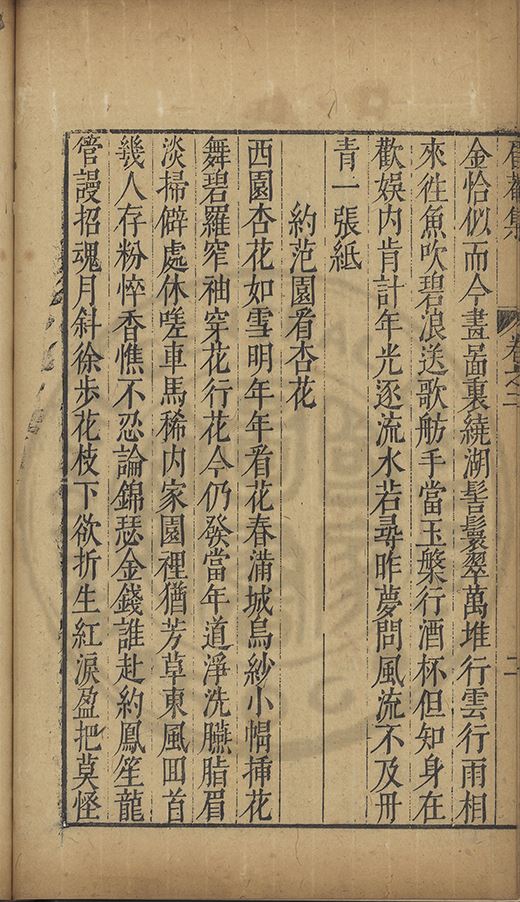 卷之二
二
金恰似而今畫啚裏繞湖髻鬟翠萬堆行雲行雨相
來徃魚吹碧浪送歌舫手當玉槃行酒杯但知身在
歡娛内肯計年光逐流水若尋昨夢問風流不及丹
青一張紙
約范園看杏花
西園杏花如雪明年年看花春滿城烏紗小帽挿花
舞碧羅窄袖穿花行花今仍發當年道淨洗臙脂眉
淡掃僻處休嗟車馬稀内家園裡猶芳草東風回首
幾人存粉悴香憔不忍論錦瑟金錢誰赴約鳳笙龍
管謾招魂月斜徐步花枝下欲折生紅淚盈把莫怪